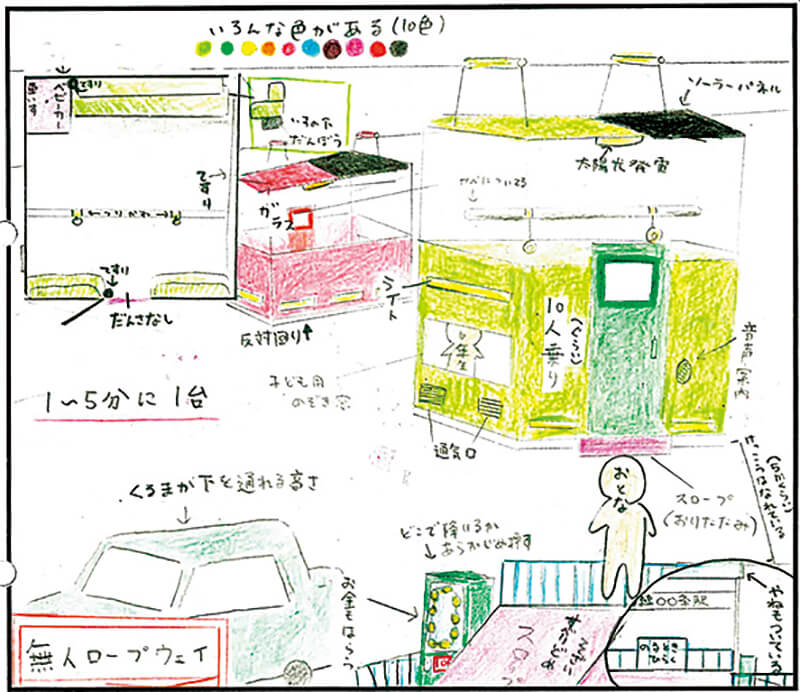 いろんな色がある(10色)
てすり
ベビーカー
車いす
いすの下
だんぼう
てすり
つりかわ
てすり
だんさなし
ソーラーパネル
太陽光発電
かべについてる
ガラス
反対回り
ライト
10人乗り
(ぐらい)
音声案内
6年生
子ども用
のぞき窓
通気口
1〜5分に1台
くるまが下を通れる高さ
おとな
スロープ
(おりたたみ)
どこで降りるか
あらかじめ押す
お金もはらう
スロープ
やねもついている
無人ロープウェイ